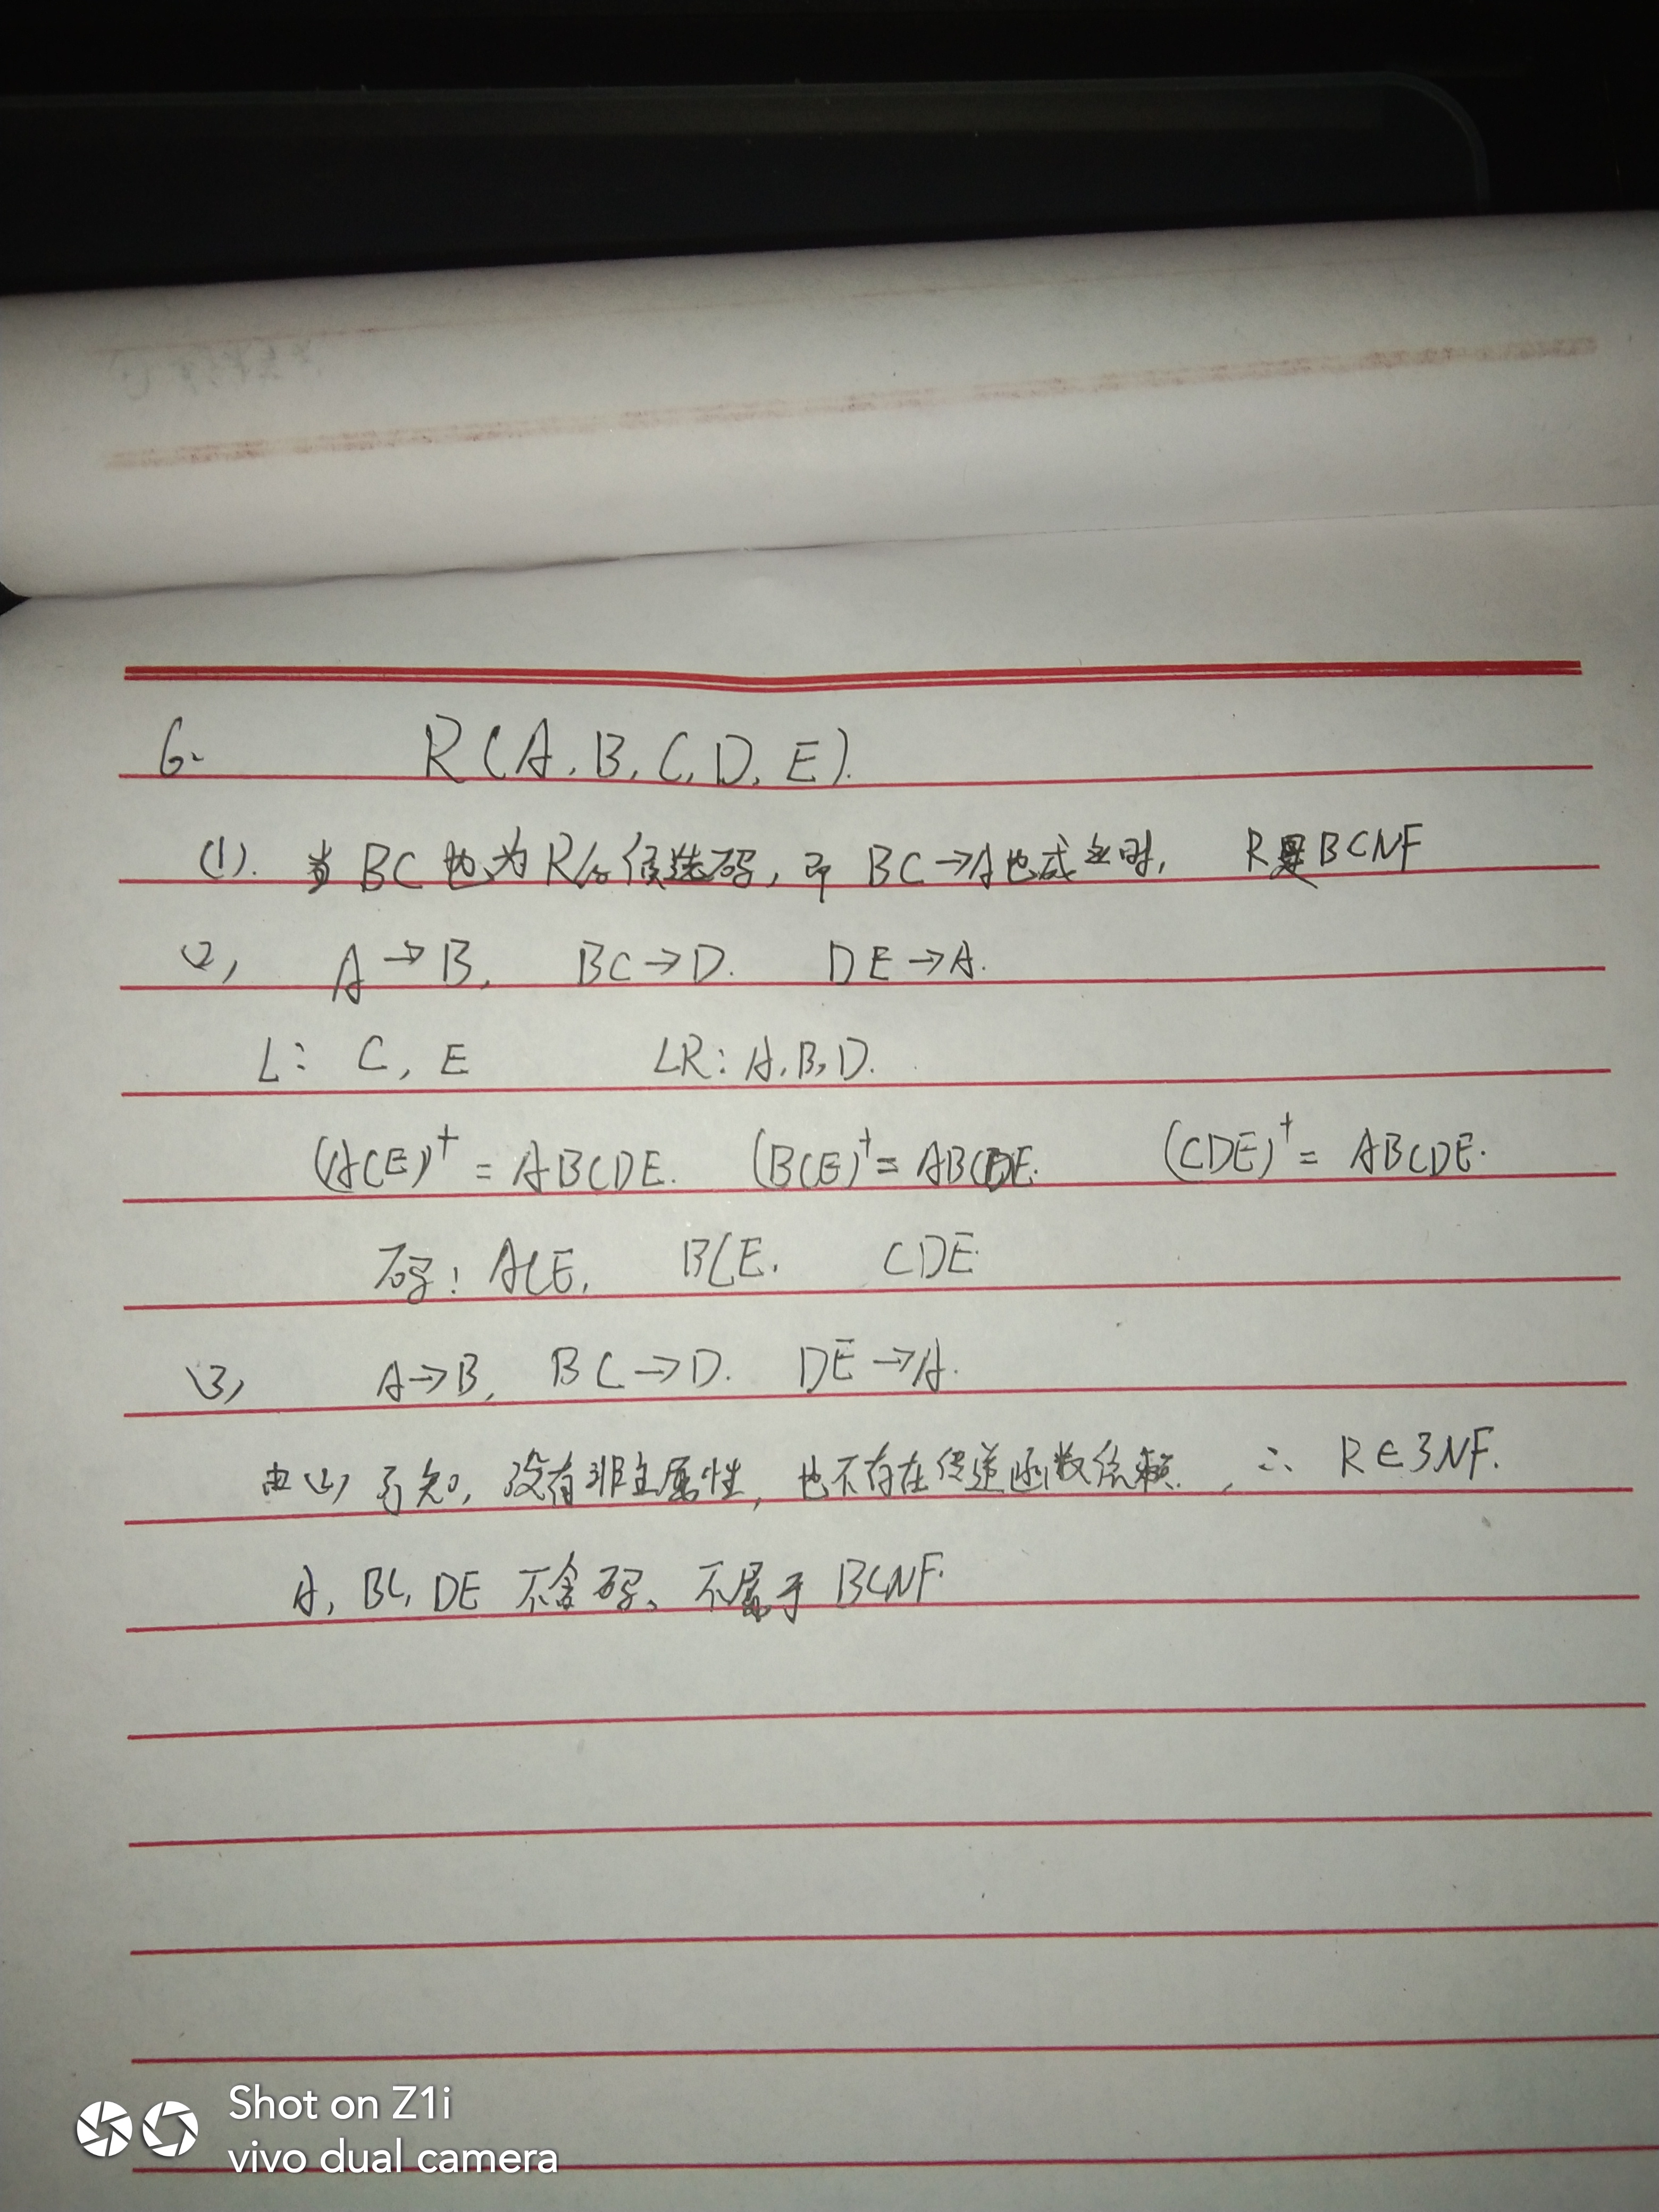 6. R(A, B, C, D, E).
(1). 当BC也为R的候选码, 即 BC→A也成立时, R是BCNF
(2) A→B, BC→D. DE→A.
L: C, E LR: A, B, D.
(ACE)⁺ = ABCDE. (BCE)⁺ = ABCDE. (CDE)⁺ = ABCDE.
码: ACE, BCE, CDE
(3) A→B, BC→D. DE→A.
由(2)可知, 没有非主属性, 也不存在传递函数依赖, ∴ R∈3NF.
A, BC, DE 不含码、不属于 BCNF.
Shot on Z1i
vivo dual camera